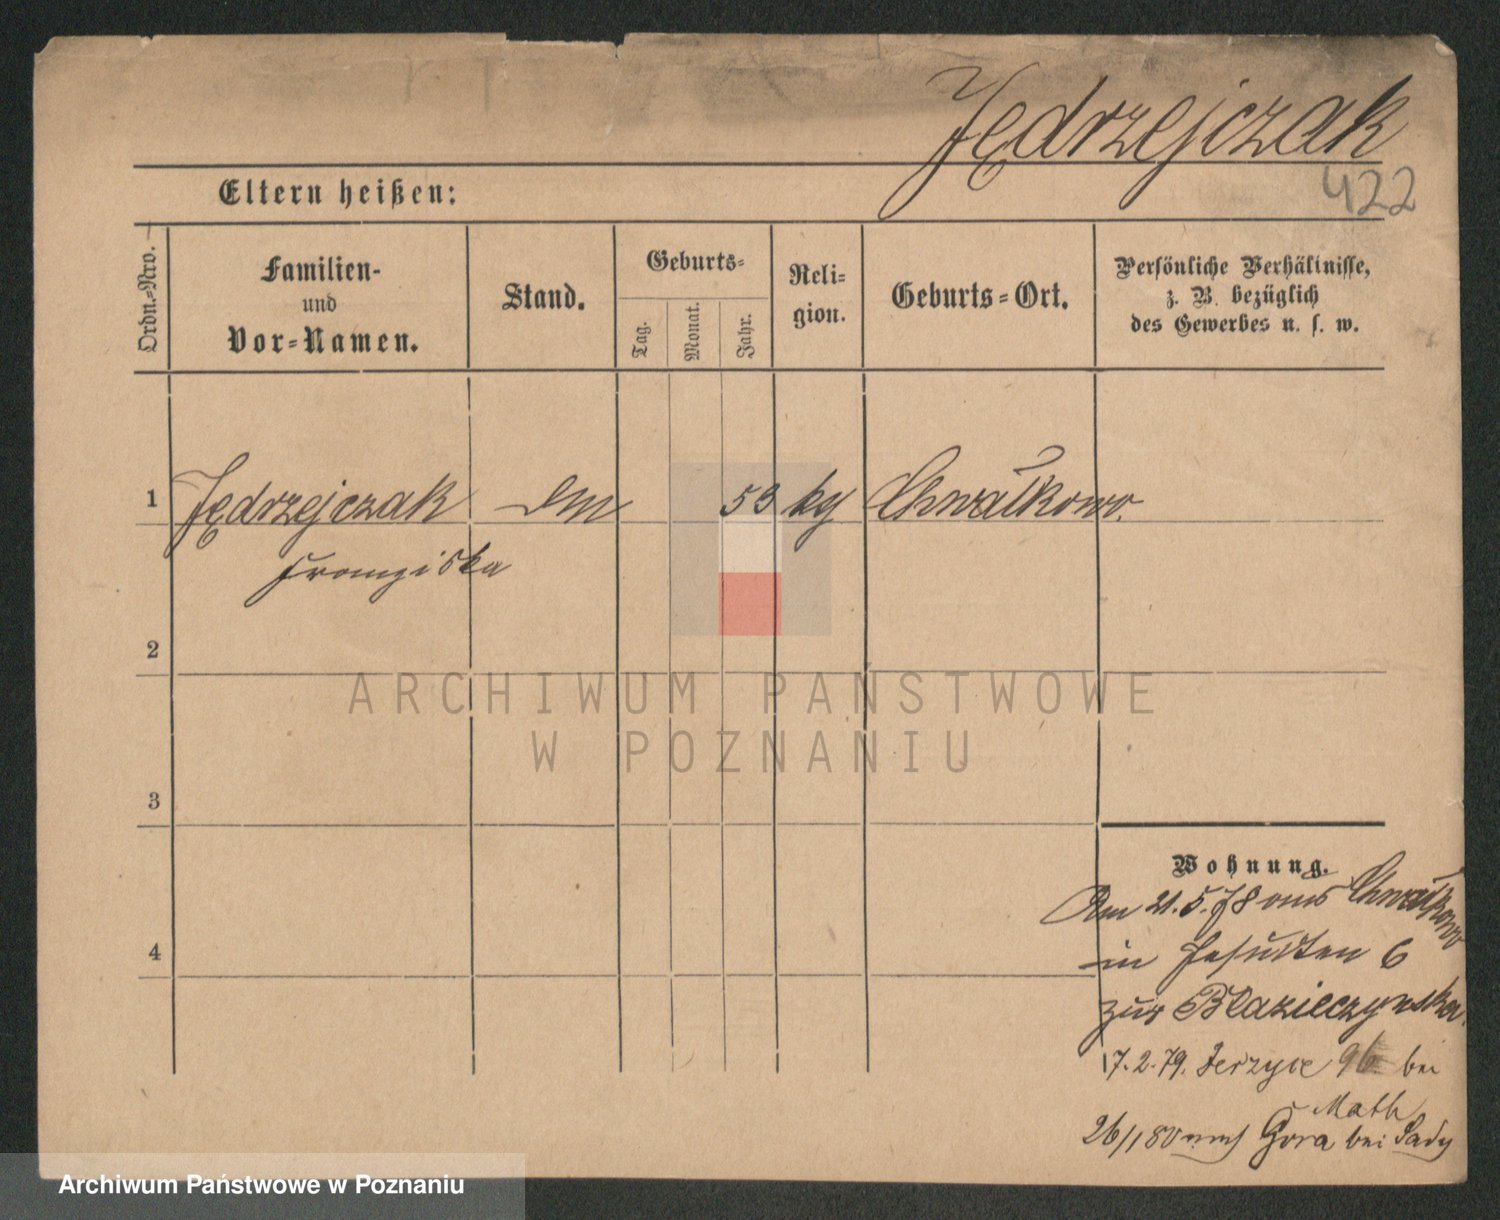 Jędrzejczak
422
Eltern heißen:
Ordn.-Nro.
Familien-
und
Vor-Namen.
Stand.
Geburts-
Tag.
Monat.
Jahr.
Reli-
gion.
Geburts-Ort.
Persönliche Verhältnisse,
z. B. bezüglich
des Gewerbes u. s. w.
1 Jędrzejczak DM 53 kg Chwałkowo.
Franziska
2
3
4
ARCHIWUM PAŃSTWOWE
W POZNANIU
Wohnung.
Am 21.5.78 aus Chwałkowo
in Jesuiten 6
zur Błazieczynska.
17.2.79. Jerzyce 96 bei
Math
26/1 80 nach Gora bei Sady
Archiwum Państwowe w Poznaniu